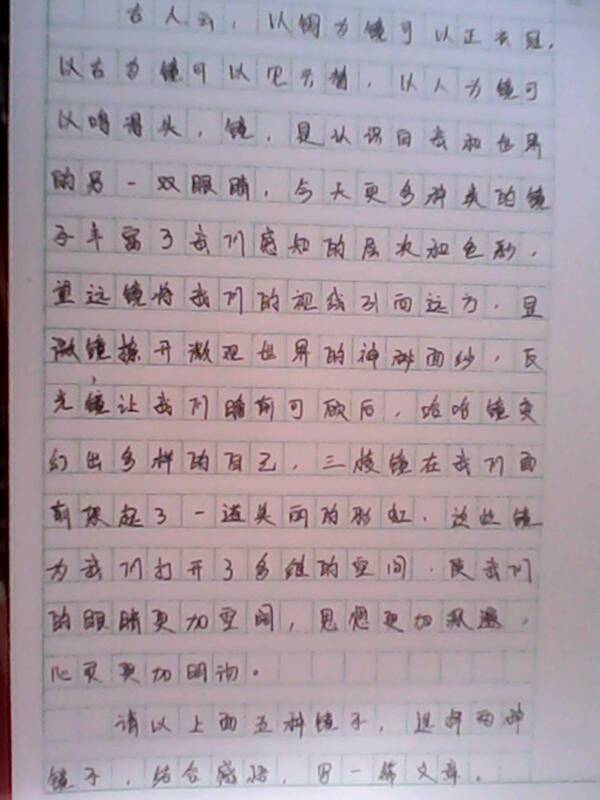 古人云，以铜为镜可以正衣冠，
以古为镜可以见兴替，以人为镜可
以明得失，镜，是认识自我和世界
的另一双眼睛，今天更多种类的镜
子丰富了我们感知的层次和色彩，
望远镜将我们的视线引向远方，显
微镜撩开微观世界的神秘面纱，反
光镜让我们瞻前可顾后，哈哈镜变
幻出多样的自己，三棱镜在我们面
前架起了一道美丽的彩虹，这些镜
为我们打开了多维的空间，使我们
的眼睛更加空阔，思想更加
心灵更加明净。
请以上面五种镜子，选择两种
镜子，结合感悟，写一篇文章。